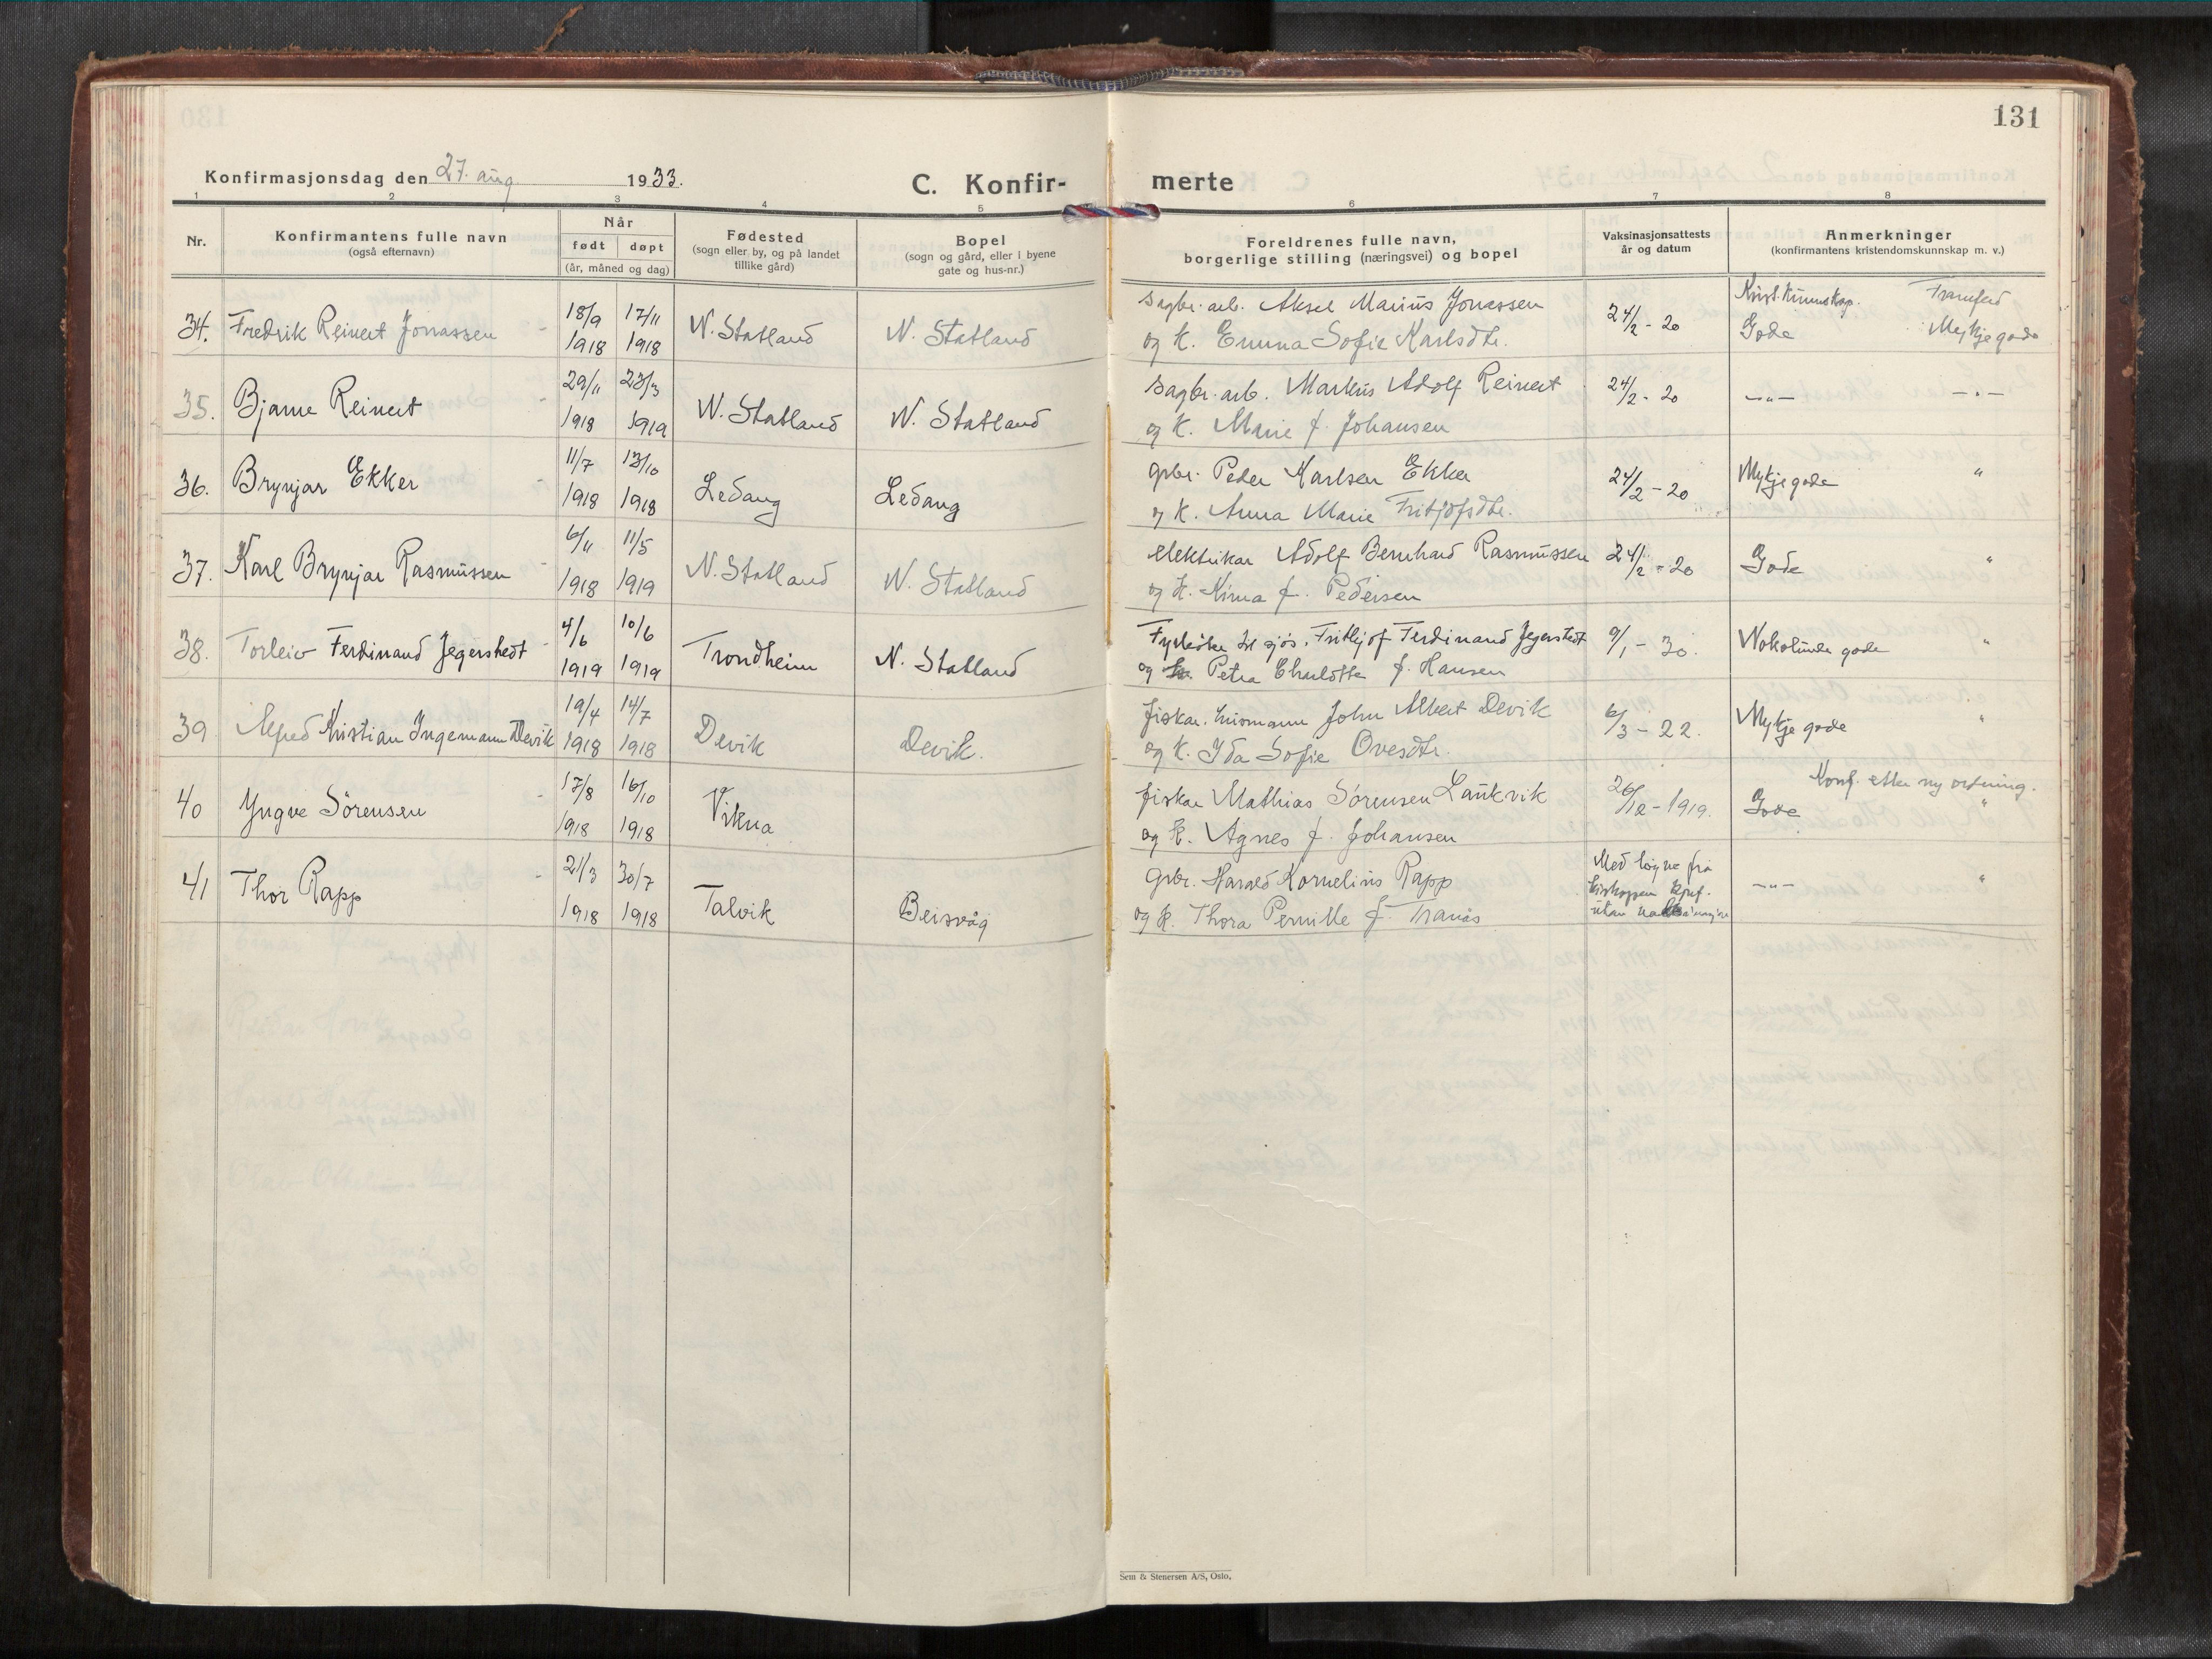 131
Konfirmasjonsdag den 27. aug 1933.
C. Konfir-
merte
1 2 3 4 5 6 7 8
Nr.
Konfirmantens fulle navn
(også efternavn)
Når
født døpt
(år, måned og dag)
Fødested
(sogn eller by, og på landet
tillike gård)
Bopel
(sogn og gård, eller i byene
gate og hus-nr.)
Foreldrenes fulle navn,
borgerlige stilling (næringsvei) og bopel
Vaksinasjonsattests
år og datum
Anmerkninger
(konfirmantens kristendomskunnskap m. v.)
Krist. kunnskap. Framferd
34. Fredrik Reinert Jonassen 18/9 1918 17/11 1918 N. Statland N. Statland
sagbr. arb. Aksel Marius Jonassen
og k. Emma Sofie Karlsdtr. 24/2 - 20 Gode Mykje gode
35. Bjarne Reinert 29/11 1918 23/3 1919 N. Statland N. Statland
sagbr. arb. Markus Adolf Reinert
og k. Marie f. Johansen 24/2 - 20 —"— —"—
36. Brynjar Ekker 11/7 1918 13/10 1918 Ledang Ledang
grbr. Peder Karlsen Ekker
og k. Anna Marie Fritjofsdtr. 24/2 - 20 Mykje gode "
37. Karl Brynjar Rasmussen 6/11 1918 11/5 1919 N. Statland N. Statland
elektrikar Adolf Bernhard Rasmussen
og k. Kima f. Pedersen 24/2 - 20 Gode "
38. Torleiv Ferdinand Jegerstedt 4/6 1919 10/6 1919 Trondheim N. Statland
Fyrbøter til sjøs. Fritjof Ferdinand Jegerstedt
og Petra Charlotte f. Hansen 9/1 - 30. Nokolunde gode "
39 Alfred Kristian Ingemann Devik 19/4 1918 14/7 1918 Devik Devik.
fiskar. husmann John Albert Devik
og k. Ida Sofie Ovesdtr. 6/3 - 22. Mykje gode "
40 Yngve Sörensen 17/8 1918 16/10 1918 Vikna
fiskar Mathias Sörensen Laukvik
og k. Agnes f. Johansen 26/12 - 1919. Konf. etter ny ordning.
Gode "
41 Thor Rapp 21/3 1918 30/7 1918 Talvik Beisvåg
grbr. Harald Kornelius Rapp
og k. Thora Pernille f. Tranås
Med løyve frå
biskopen konf.
utan
—"— "
Sem & Stenersen A/S, Oslo.